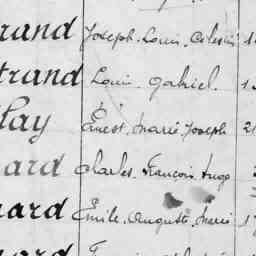 rand Joseph. Louis. Celestin 1
trand Louis. Gabriel. 1
lay Ernest. Marie. Joseph 2
ard Charles. François. Hugo
nard Emile. Auguste. Marie 1